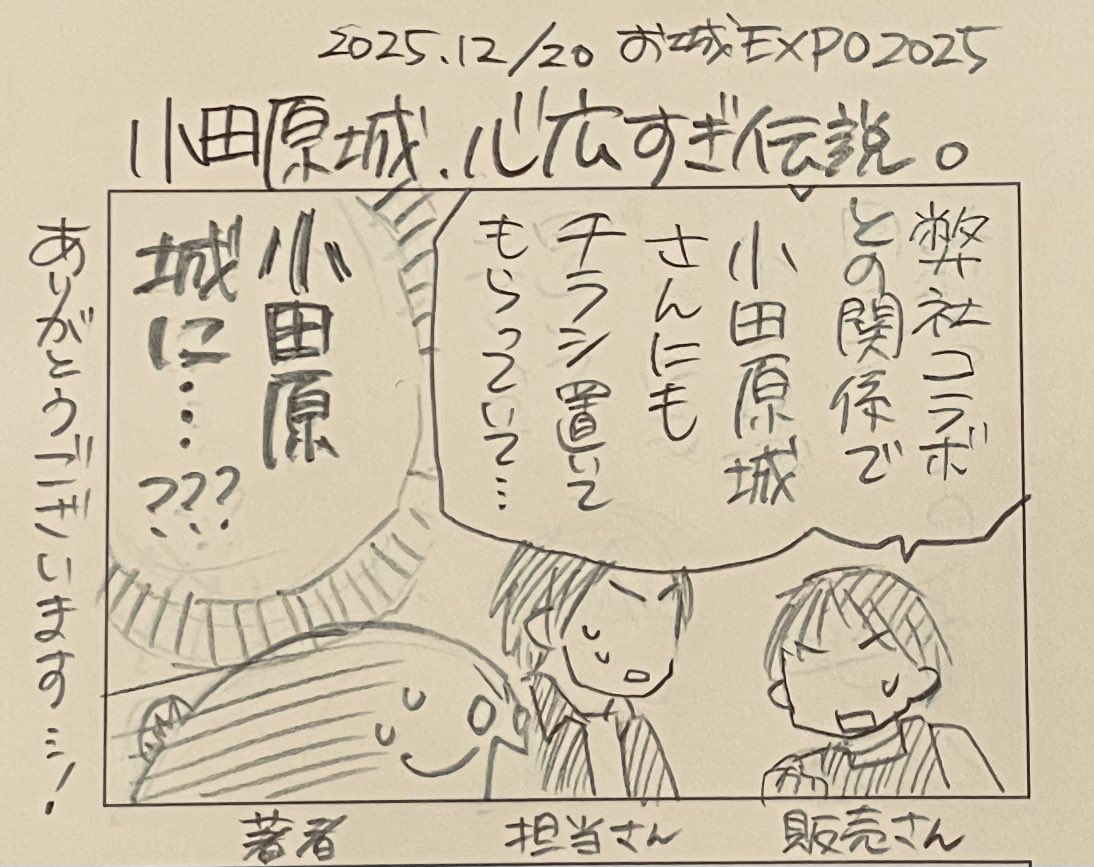 2025.12/20 お城EXPO2025
小田原城、心広すぎ伝説。
弊社コラボ
との関係で
小田原城
さんにも
チラシ置いて
もらっていて…
小田原
城に…
???
ありがとうございます…!
販売さん
担当さん
著者